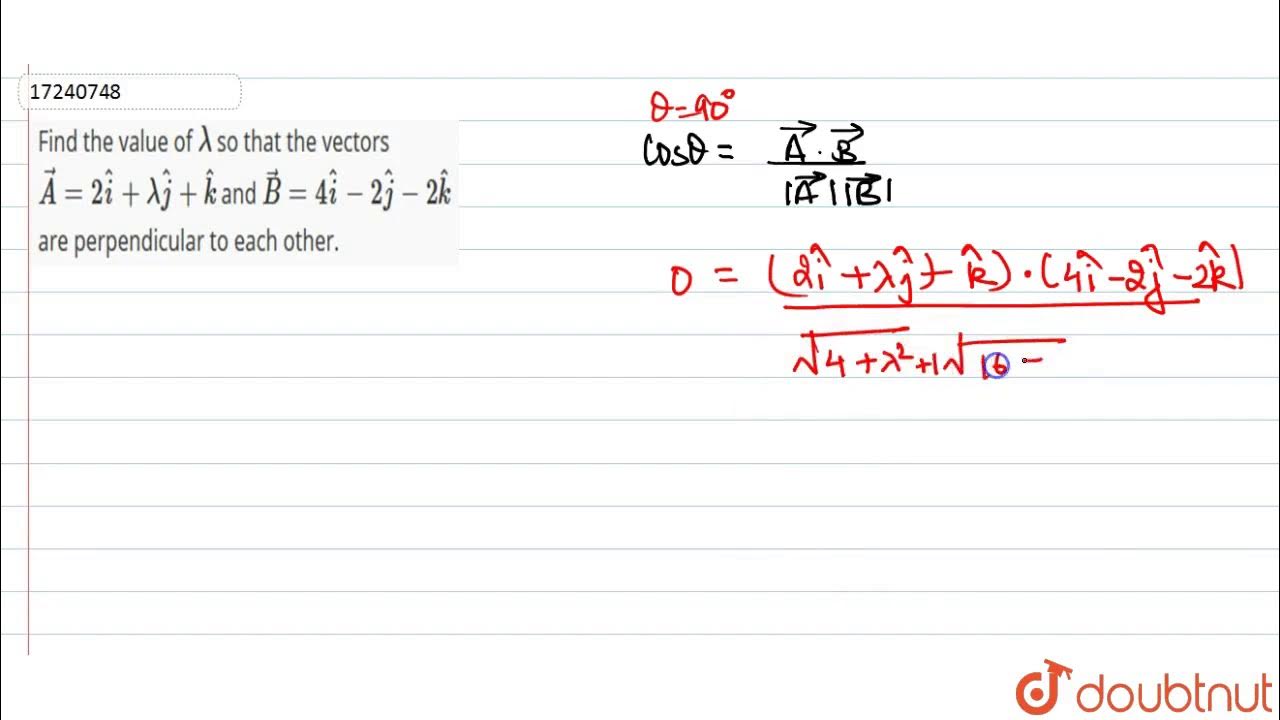 17240748
Find the value of λ so that the vectors
$\vec{A} = 2\hat{i} + λ\hat{j} + \hat{k}$ and $\vec{B} = 4\hat{i} - 2\hat{j} - 2\hat{k}$
are perpendicular to each other.
θ = 90°
$\cos θ = \frac{\vec{A} \cdot \vec{B}}{|\vec{A}||\vec{B}|}$
$0 = \frac{(2\hat{i} + λ\hat{j} + \hat{k}) \cdot (4\hat{i} - 2\hat{j} - 2\hat{k})}{\sqrt{4 + λ^2 + 1}\sqrt{16 -}}$
doubtnut